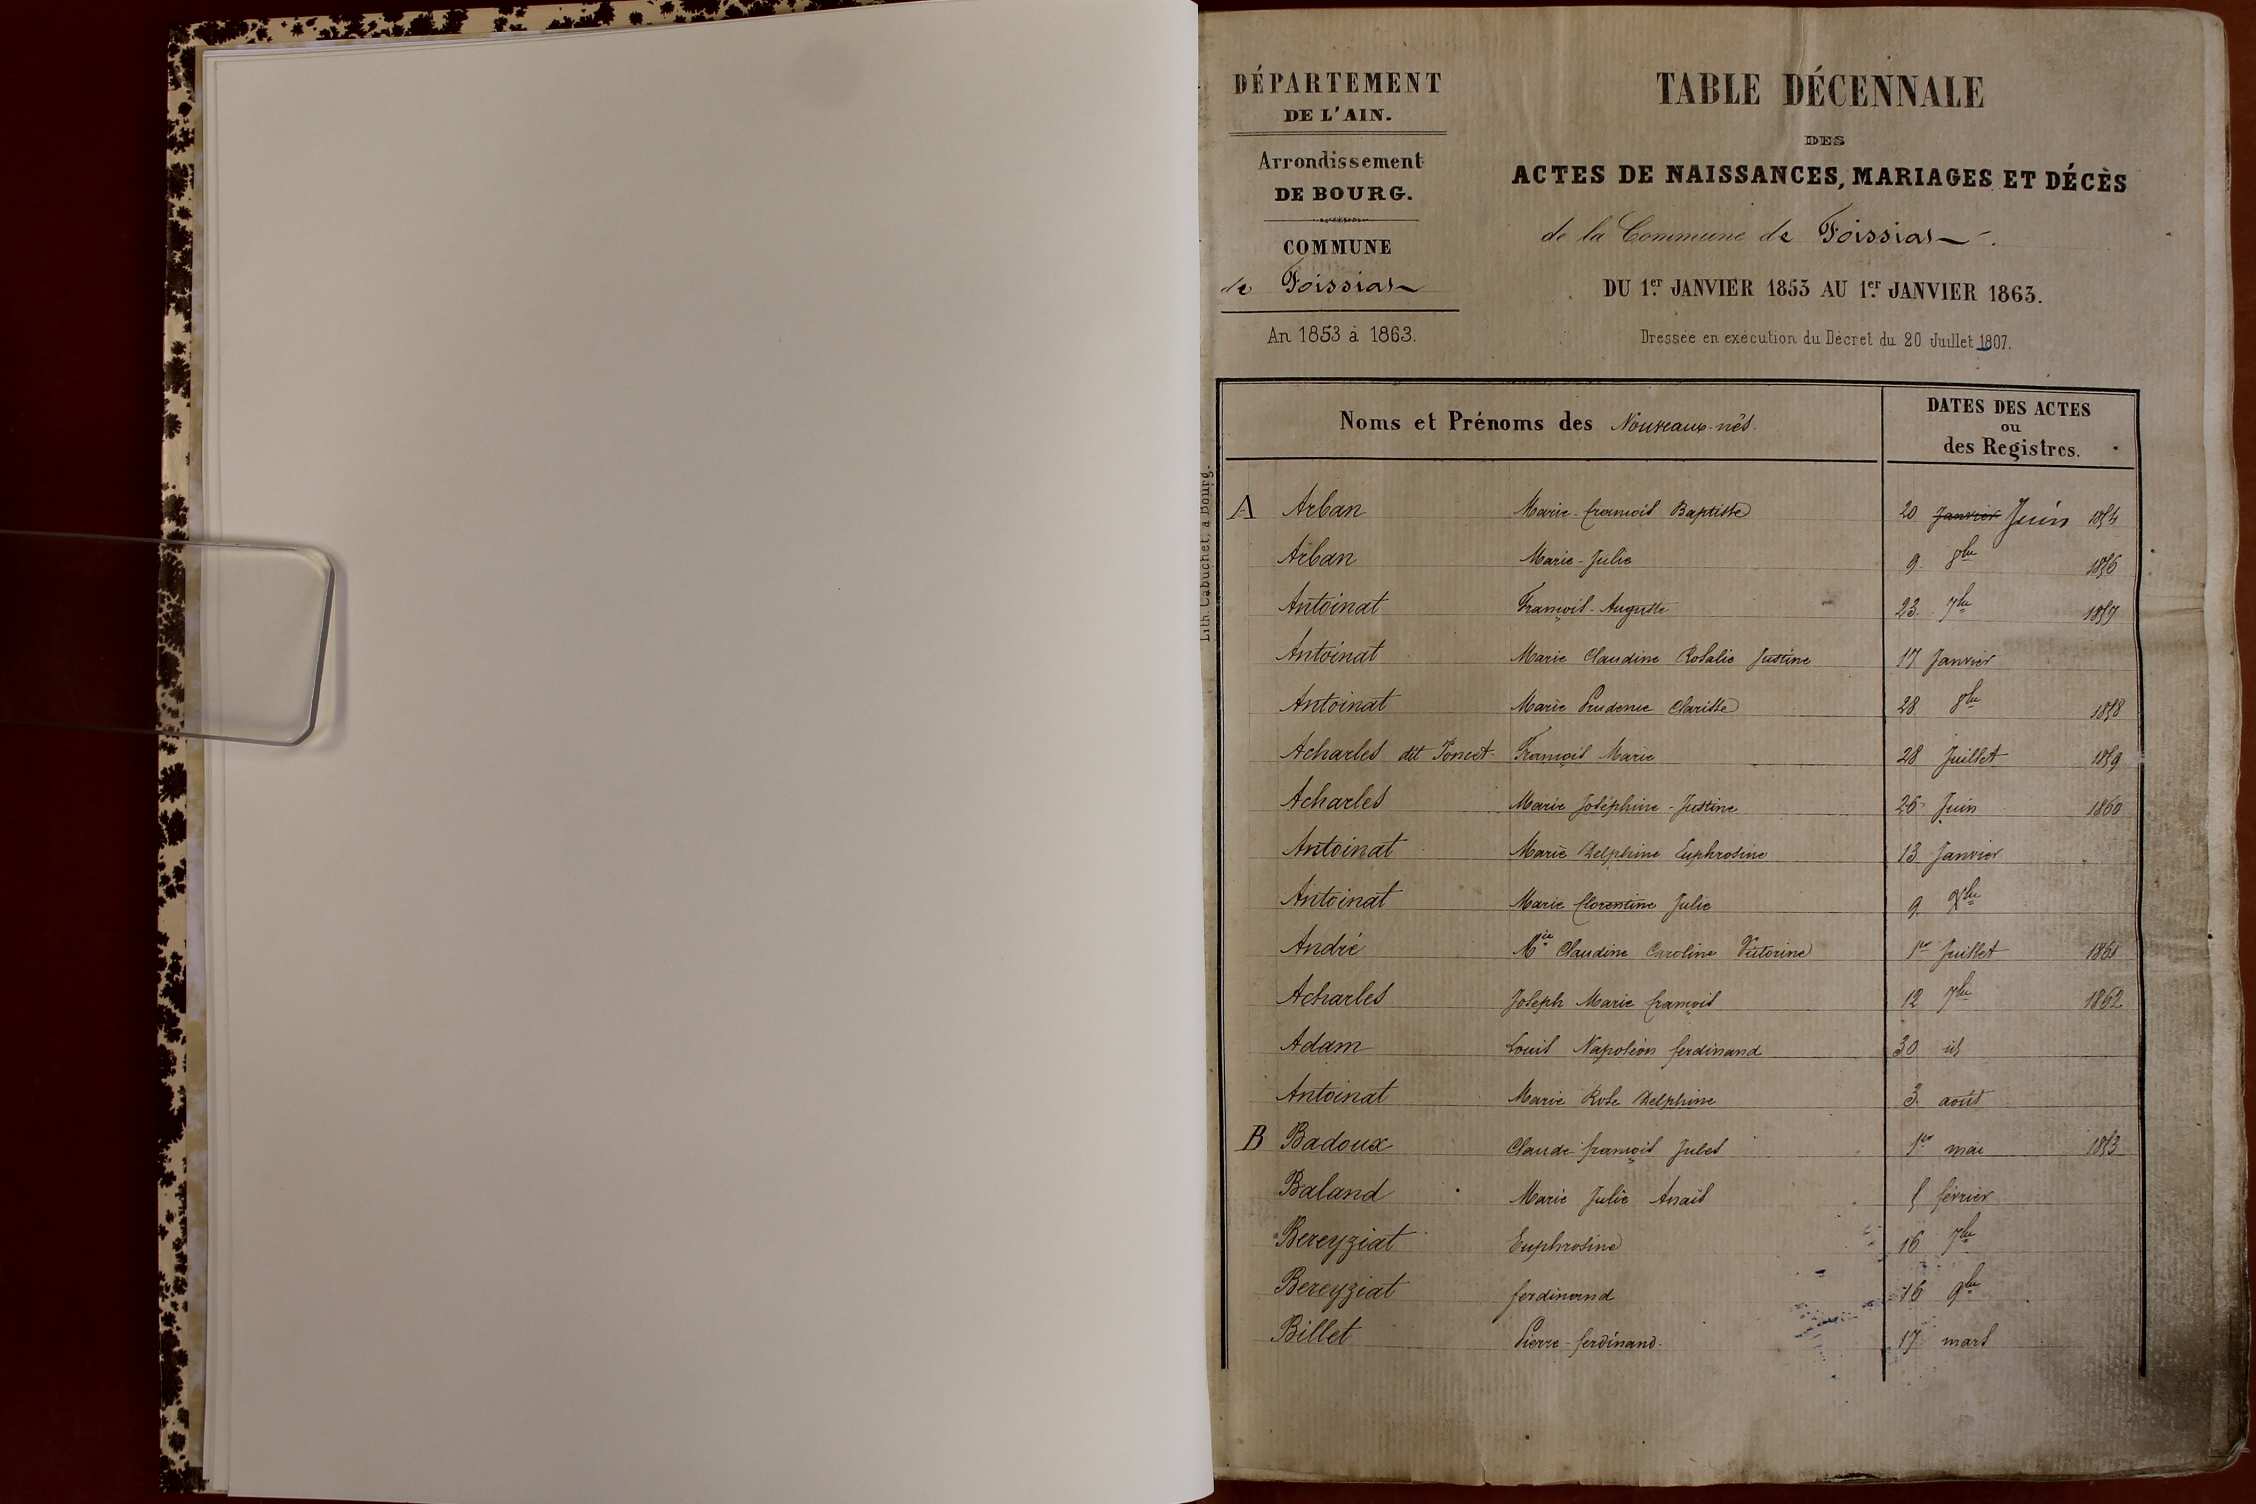 DÉPARTEMENT
DE L'AIN.
Arrondissement
DE BOURG.
COMMUNE
de Foissiat
An 1853 à 1863.
TABLE DÉCENNALE
DES
ACTES DE NAISSANCES, MARIAGES ET DÉCÈS
de la Commune de Foissiat.
DU 1er JANVIER 1853 AU 1er JANVIER 1863.
Dressée en exécution du Décret du 20 Juillet 1807.
Lith. Cabuchet, à Bourg.
Noms et Prénoms des Nouveaux-nés.
DATES DES ACTES
ou
des Registres.
A Arban Marie-françois Baptiste 20 Janvier Juin 1854
Arban Marie-Julie 9 8bre 1856
Antoinat François-Auguste 23 7bre 1857
Antoinat Marie Claudine Rosalie Justine 17 Janvier
Antoinat Marie Prudence Clarisse 28 8bre 1858
Acharles dit Poncet François Marie 28 Juillet 1859
Acharles Marie Joséphine-Justine 26 Juin 1860
Antoinat Marie Delphine Euphrosine 13 Janvier
Antoinat Marie florentine Julie 9
André Mie Claudine Caroline Victorine 1er Juillet 1861
Acharles Joseph Marie françois 12 7bre 1862
Adam Louis Napoléon ferdinand 30 id
Antoinat Marie Rose Delphine 3 août
B Badoux Claude françois Jules 1er mai 1853
Baland Marie Julie Anaïs 5 février
Bereyziat Euphrosine 16 7bre
Bereyziat ferdinand 16 9bre
Billet Pierre-ferdinand. 17 mars